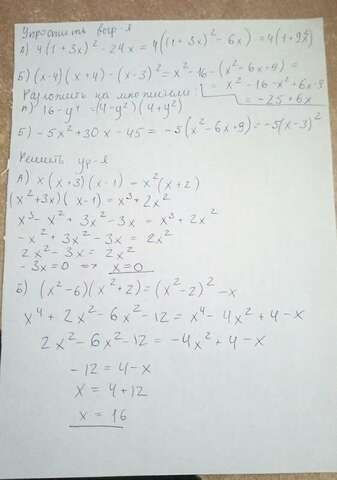 Упростить выр-я
А) 4(1+3x)² - 24x = 4((1+3x)² - 6x) = 4(1+9x²)
Б) (x-4)(x+4) - (x-3)² = x² - 16 - (x² - 6x + 9) =
= x² - 16 - x² + 6x - 9
= -25 + 6x
Разложить на множители:
А) 16 - y⁴ = (4-y²)(4+y²)
Б) -5x² + 30x - 45 = -5(x² - 6x + 9) = -5(x-3)²
Решить ур-я
А) x(x+3)(x-1) = x²(x+2)
(x²+3x)(x-1) = x³ + 2x²
x³ - x² + 3x² - 3x = x³ + 2x²
-x² + 3x² - 3x = 2x²
2x² - 3x = 2x²
-3x = 0 => x = 0
Б) (x²-6)(x²+2) = (x²-2)² - x
x⁴ + 2x² - 6x² - 12 = x⁴ - 4x² + 4 - x
2x² - 6x² - 12 = -4x² + 4 - x
-12 = 4 - x
x = 4 + 12
x = 16